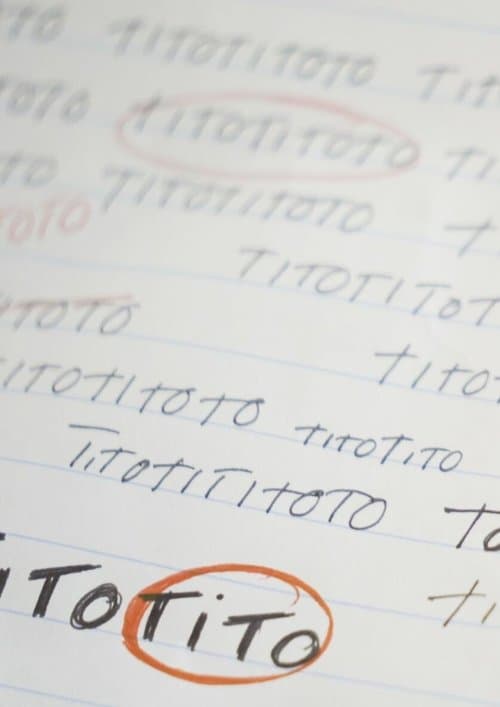 TO TITOTITOTO TIT
OTO TITOTITOTO TI
TO TITOTITOTO T
TOTO TITOTITOT
ITOTO TITOT
ITOTITOTO TITOTITO
TiTOTITITOTO TO
iTOTiTO TI